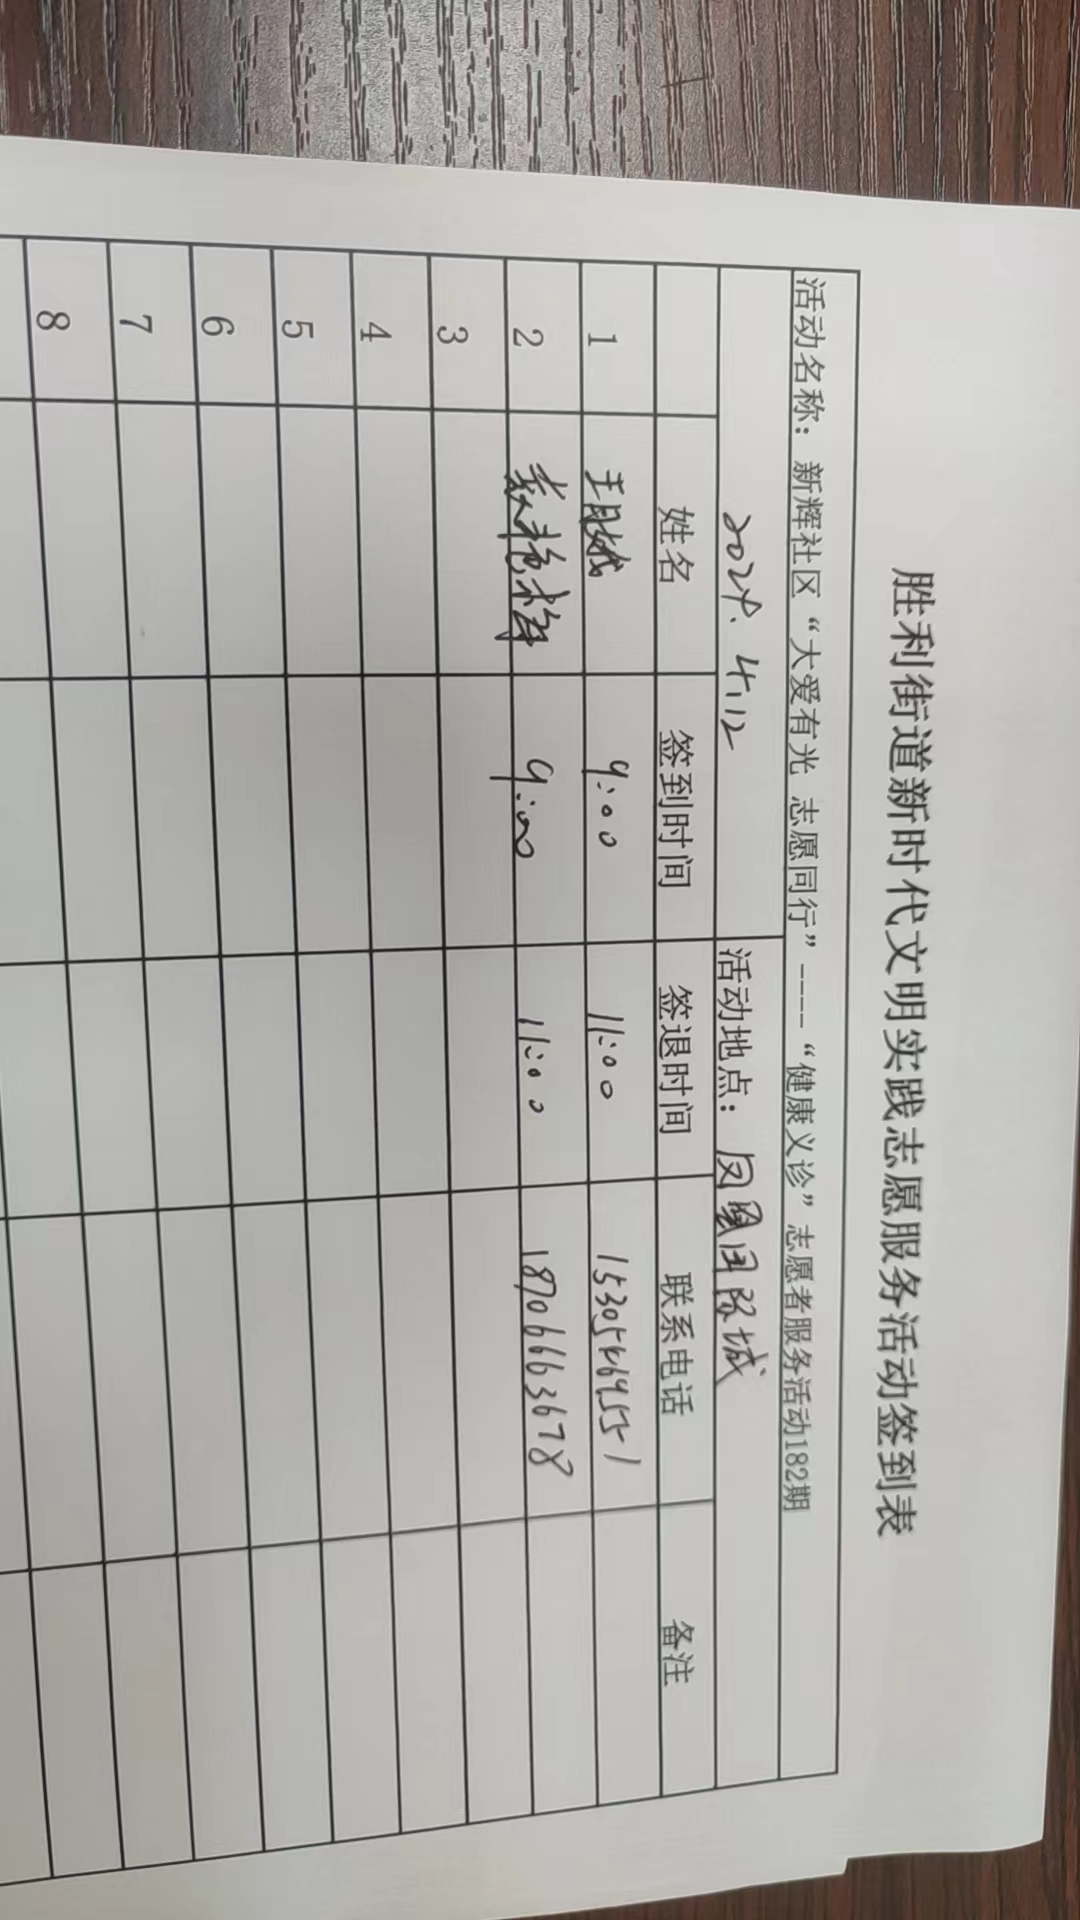 胜利街道新时代文明实践志愿服务活动签到表
活动名称：新辉社区“大爱有光 志愿同行”----“健康义诊”志愿者服务活动182期
2024.4.12 活动地点：凤凰国际城
姓名 签到时间 签退时间 联系电话 备注
1 9:00 11:00
2 9:00 11:00 18706663678
3
4
5
6
7
8